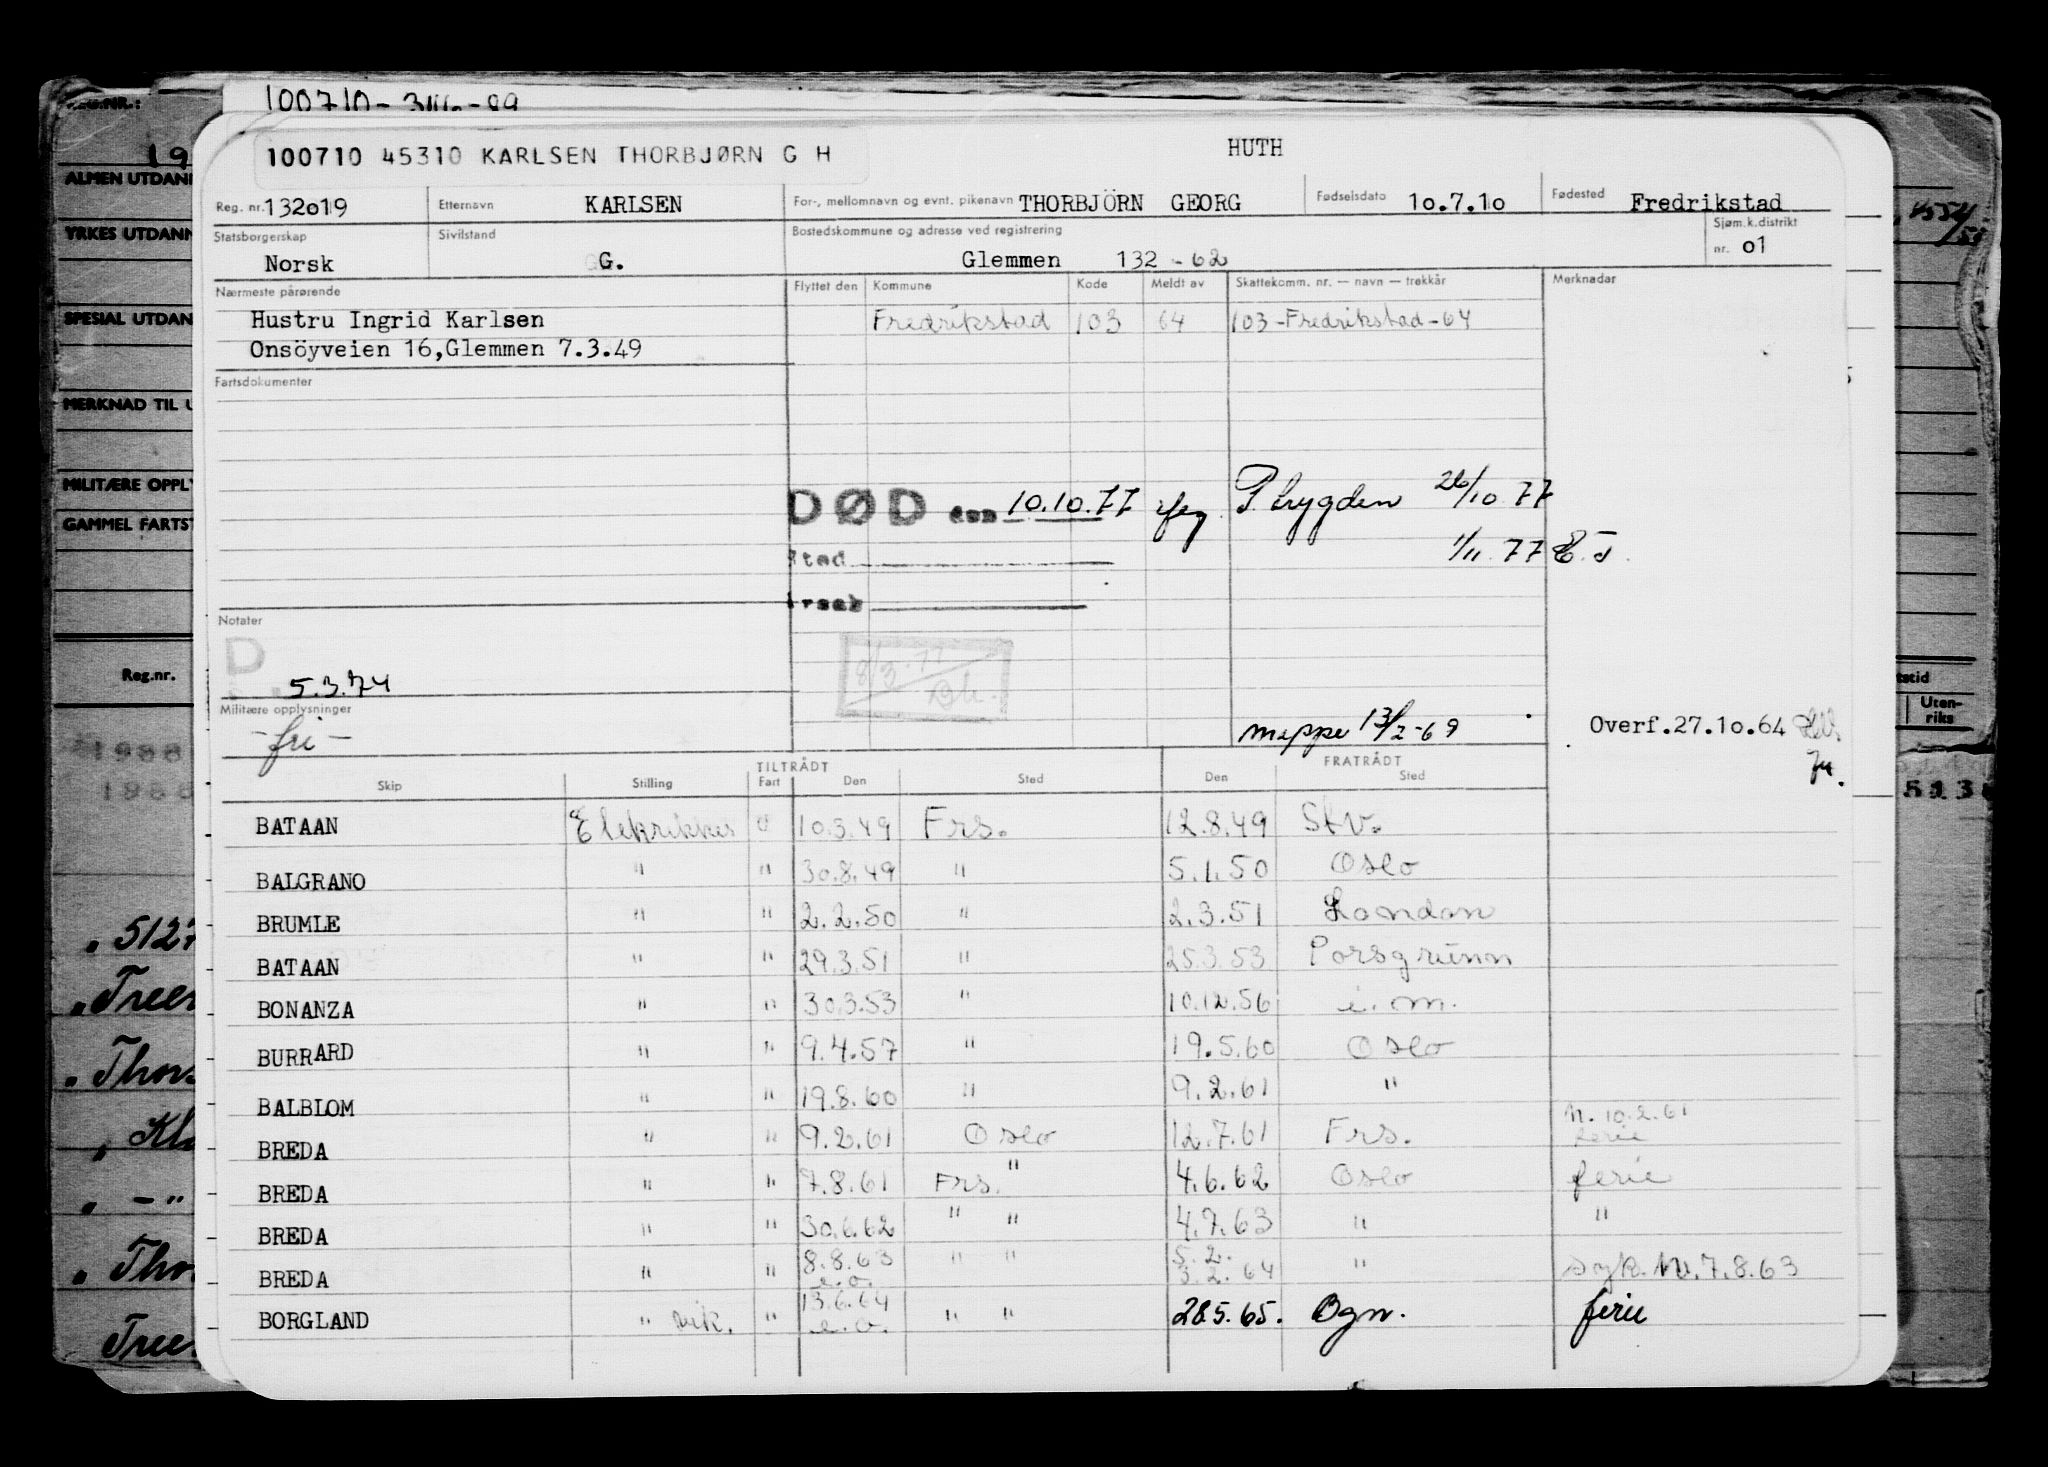 100710-
100710 45310 KARLSEN THORBJØRN G H
HUTH
Reg. nr. 132019 Etternavn KARLSEN For-, mellomnavn og evnt. pikenavn THORBJÖRN GEORG Fødselsdato 10.7.10 Fødested Fredrikstad
Statsborgerskap Norsk Sivilstand G. Bostedskommune og adresse ved registrering Glemmen 132 - 62 Sjøm.k.distrikt nr. 01
Nærmeste pårørende Flyttet den Kommune Kode Meldt av Skattekomm. nr. — navn — trekkår Merknader
Hustru Ingrid Karlsen Fredrikstad 103 64 103-Fredrikstad-64
Onsöyveien 16,Glemmen 7.3.49
Fartsdokumenter
DØD den 10.10.77 iføg. P trygden 26/10 77
Sted 1/11. 77 E.J.
Årsak
Notater
D
5.3.74
8/3.77
Militære opplysninger
-fri-
mappe 13/2-69
Overf.27.10.64
TILTRÅDT FRATRÅDT
Skip Stilling Fart Den Sted Den Sted
BATAAN Elekrikker U 10.3.49 Frs. 12.8.49 Stv.
BALGRANO " " 30.8.49 " 5.1.50 Oslo
BRUMLE " " 2.2.50 " 2.3.51 London
BATAAN " " 29.3.51 " 25.3.53 Porsgrunn
BONANZA " " 30.3.53 " 10.12.56 i.m.
BURRARD " " 9.4.57 " 19.5.60 Oslo
BALBLOM " " 19.8.60 " 9.2.61 "
BREDA " " 9.2.61 Oslo 12.7.61 Frs. M. 10.2.61 ferie
BREDA " " 7.8.61 Frs. " 4.6.62 Oslo ferie
BREDA " " 30.6.62 " " 4.7.63 " "
BREDA " " 8.8.63 e.o. " " 5.2. 3.2.64 " syk. M.7.8.63
BORGLAND " vik. " 13.6.64 e.o. " " 28.5.65. Bgn. ferie
ALMEN UTDAN
YRKES UTDAN
SPESIAL UTDAN
MERKNAD TIL U
MILITÆRE OPPLY
GAMMEL FARTST
Reg.nr.
Uten-
riks